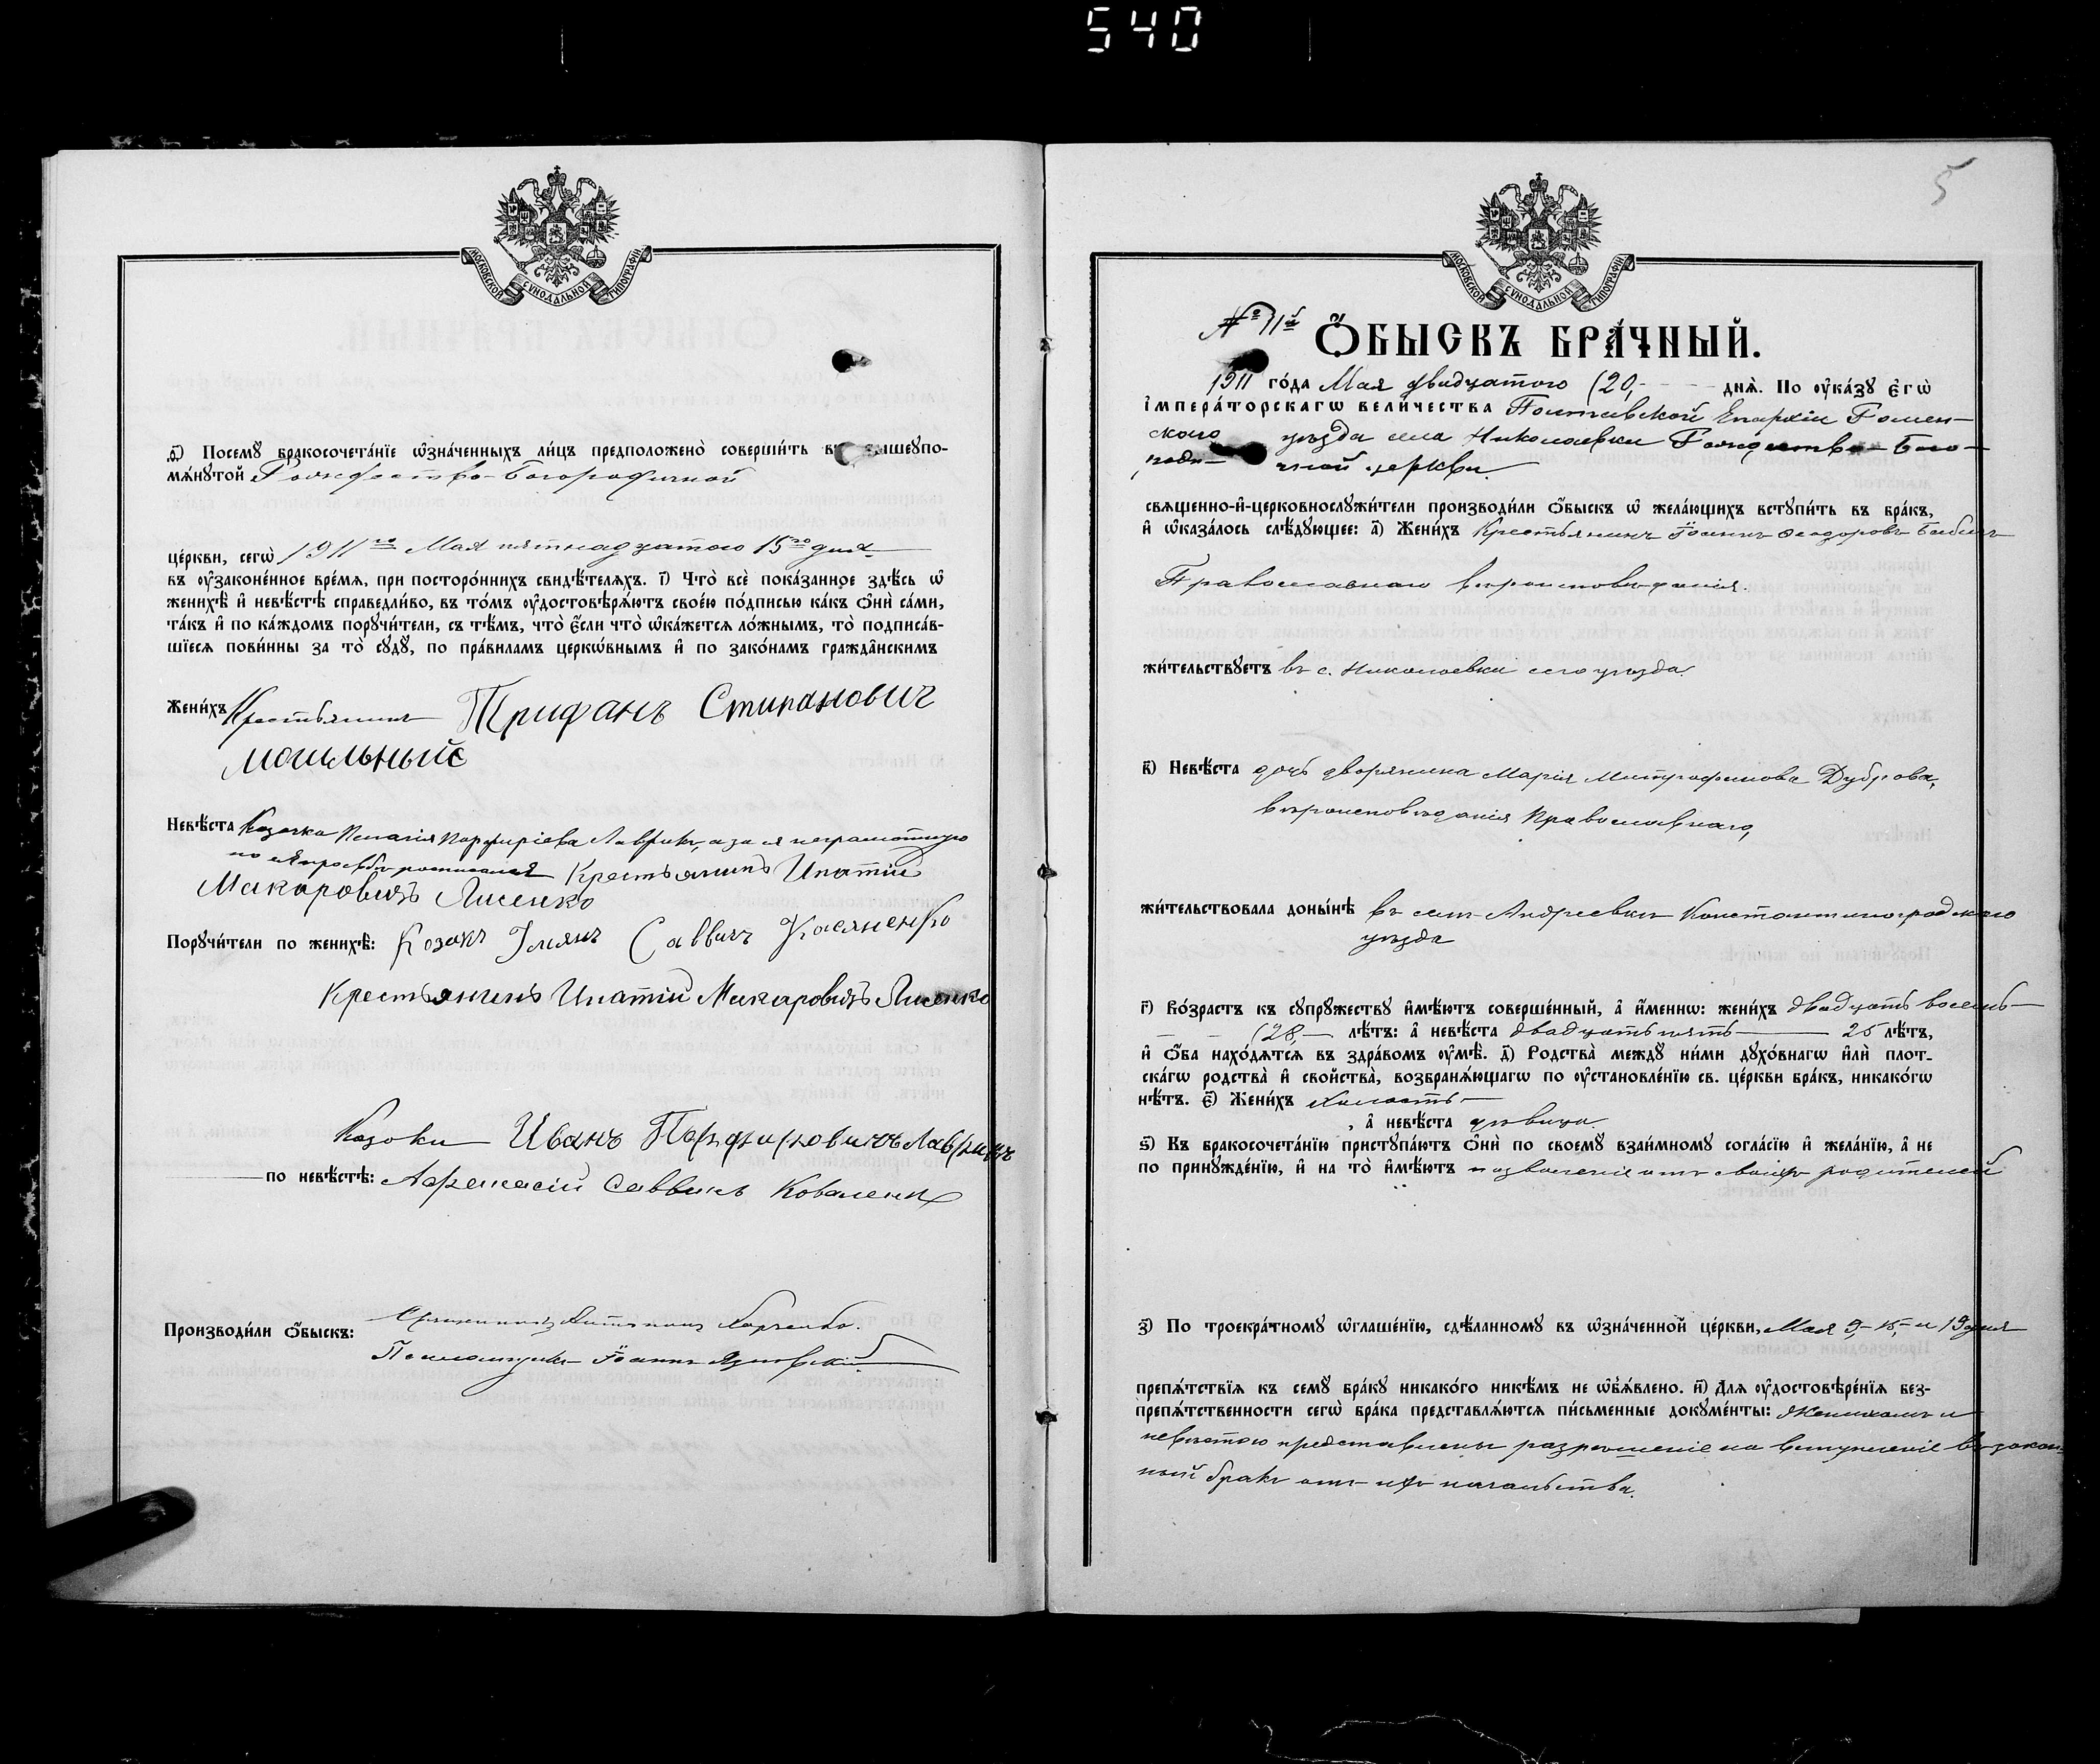 540
МОСКОВСКОЙ СѴНОДАЛЬНОЙ ТИПОГРАФІИ
ѳ҃) Посемꙋ бракосочета́нїе ѡ҆зна́ченныхъ ли́цъ предположено̀ соверши́ть въ вышеꙋпо-
мѧ́нꙋтой Рождество-Богородичной
це́ркви, сегѡ̀ 1911го Мая пятнадцатого 15го дня
въ ᲂу҆законе́нное вре́мѧ, при посторо́ннихъ свидѣ́телѧхъ. і҃) Что̀ всѐ пока́занное здѣ́сь ѡ҆
женихѣ̀ и҆ невѣ́стѣ справедли́во, въ то́мъ ᲂу҆достовѣрѧ́ютъ свое́ю по́дписью ка́къ ѻ҆нѝ са́ми,
та́къ и҆ по ка́ждомъ порꙋчи́тели, съ тѣ́мъ, что̀ є҆́сли что̀ ѡ҆ка́жетсѧ ло́жнымъ, то̀ подписа́в-
шїесѧ пови́нны за то̀ сꙋдꙋ̀, по пра́виламъ церкѡ́внымъ и҆ по зако́намъ гражда̑нскимъ
Жени́хъ Крестьянинъ Трифанъ Стипановичъ
могильный
Невѣ́ста Козачка Пелагія Порфиріева Лаврикъ, а за ея неграмотную
по ея просьбѣ росписался Крестьянинъ Ипатій
Макаровичъ Лисенко
Порꙋчи́тели по женихѣ̀: Козакъ Саввичъ Касяненко
Крестьянинъ Ипатій Макаровичъ Лисенко
Козаки Иванъ Порфировичъ Лаврикъ
по невѣ́стѣ: Афанасій Саввичъ Коваленко
Производи́ли ѻ҆́быскъ: Священникъ Харченко.
Псаломщикъ Іоаннъ
5
МОСКОВСКОЙ СѴНОДАЛЬНОЙ ТИПОГРАФІИ
№ 11й Ѻ҆́БЫСКЪ БРА́ЧНЫЙ.
1911 го́да Мая двадцатого (20,- днѧ̀. По ᲂу҆ка́зꙋ є҆гѡ̀
і҆мпера́торскагѡ вели́чества Полтавской Епархіи Ромен-
ского уѣзда села Николаевки Рождество-Бого-
роди- чной церкви
свѧщенно-и҆-церковнослꙋжи́тели производи́ли ѻ҆́быскъ ѡ҆ жела́ющихъ встꙋпи́ть въ бра́къ,
и҆ ѡ҆каза́лось слѣ́дꙋющее: а҃) Жени́хъ Крестьянинъ Іоаннъ Ѳеодоровъ
Православнаго вѣроисповѣданія.
жи́тельствꙋетъ въ с. Николаевки сего уѣзда.
в҃) Невѣ́ста дочь дворянина Марія Митрофанова Дуброва,
вѣроисповѣданія Православнаго,
жи́тельствовала доны́нѣ въ селѣ Андреевки Константиноградскаго
уѣзда
г҃) Во́зрастъ къ сꙋпрꙋ́жествꙋ и҆мѣ́ютъ соверше́нный, а҆ и҆́меннѡ: жени́хъ двадцать восемь
(28,- лѣ́тъ: а҆ невѣ́ста двадцать пять 25 лѣ́тъ,
и҆ ѻ҆́ба нахо́дѧтсѧ въ здра́вомъ ᲂу҆мѣ̀. д҃) Родства̀ междꙋ̀ ни́ми дꙋхо́внагѡ и҆лѝ плот-
ска́гѡ родства̀ и҆ сво́йства, возбранѧ́ющагѡ по ᲂу҆становле́нїю св. це́ркви бра́къ, никако́гѡ
нѣ́тъ. є҃) Жени́хъ холостъ
, а҆ невѣ́ста дѣвица
ѕ҃) Къ бракосочета́нїю пристꙋпа́ютъ ѻ҆нѝ по своемꙋ̀ взаи́мномꙋ согла́сїю и҆ жела́нїю, а҆ не
по принꙋжде́нїю, и҆ на то̀ и҆мѣ́ютъ позволеніе отъ своихъ родителей
з҃) По троекра́тномꙋ ѡ҆глаше́нїю, сдѣ́ланномꙋ въ ѡ҆зна́ченной це́ркви, Мая 9,- 15,- и 19 дня
препѧ́тствїѧ къ семꙋ̀ бра́кꙋ никако́го никѣ́мъ не ѡ҆б̾ѧ́влено. и҃) Длѧ ᲂу҆достовѣре́нїѧ без-
препѧ́тственности сегѡ̀ бра́ка представлѧ́ютсѧ пи́сьменные докꙋме́нты: Женихомъ и
невѣстою представлены разрешеніе на вступленіе въ закон-
ный бракъ отъ ихъ начальства.